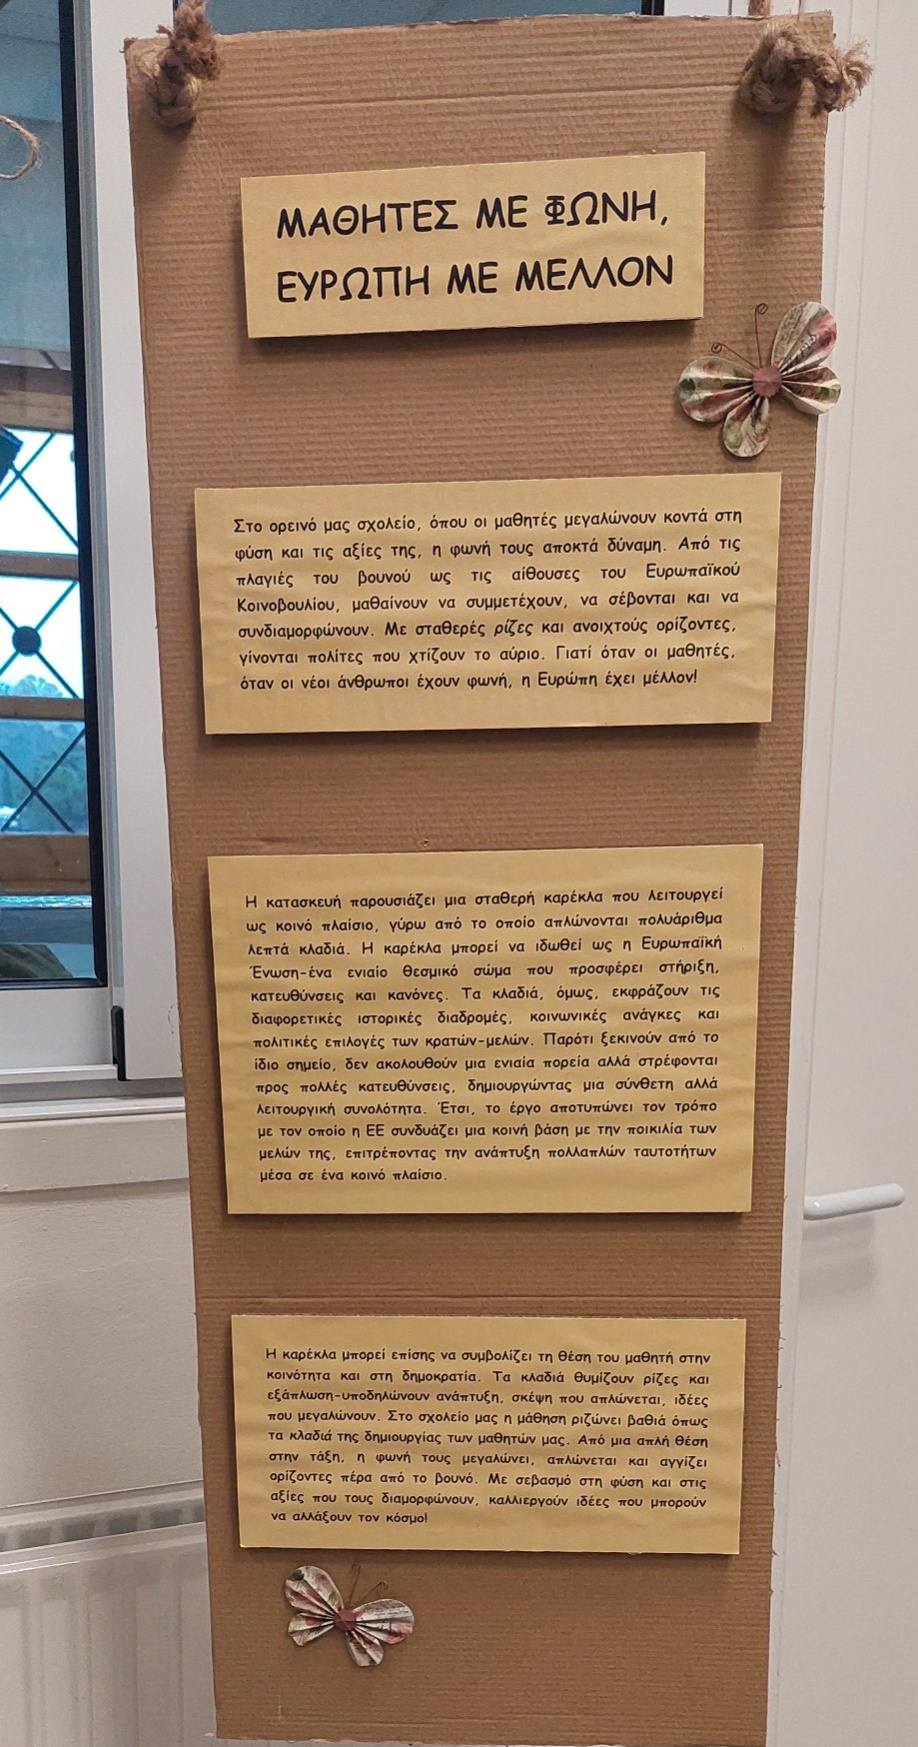 ΜΑΘΗΤΕΣ ΜΕ ΦΩΝΗ,
ΕΥΡΩΠΗ ΜΕ ΜΕΛΛΟΝ
Στο ορεινό μας σχολείο, όπου οι μαθητές μεγαλώνουν κοντά στη
φύση και τις αξίες της, η φωνή τους αποκτά δύναμη. Από τις
πλαγιές του βουνού ως τις αίθουσες του Ευρωπαϊκού
Κοινοβουλίου, μαθαίνουν να συμμετέχουν, να σέβονται και να
συνδιαμορφώνουν. Με σταθερές ρίζες και ανοιχτούς ορίζοντες,
γίνονται πολίτες που χτίζουν το αύριο. Γιατί όταν οι μαθητές,
όταν οι νέοι άνθρωποι έχουν φωνή, η Ευρώπη έχει μέλλον!
Η κατασκευή παρουσιάζει μια σταθερή καρέκλα που λειτουργεί
ως κοινό πλαίσιο, γύρω από το οποίο απλώνονται πολυάριθμα
λεπτά κλαδιά. Η καρέκλα μπορεί να ιδωθεί ως η Ευρωπαϊκή
Ένωση-ένα ενιαίο θεσμικό σώμα που προσφέρει στήριξη,
κατευθύνσεις και κανόνες. Τα κλαδιά, όμως, εκφράζουν τις
διαφορετικές ιστορικές διαδρομές, κοινωνικές ανάγκες και
πολιτικές επιλογές των κρατών-μελών. Παρότι ξεκινούν από το
ίδιο σημείο, δεν ακολουθούν μια ενιαία πορεία αλλά στρέφονται
προς πολλές κατευθύνσεις, δημιουργώντας μια σύνθετη αλλά
λειτουργική συνολότητα. Έτσι, το έργο αποτυπώνει τον τρόπο
με τον οποίο η ΕΕ συνδυάζει μια κοινή βάση με την ποικιλία των
μελών της, επιτρέποντας την ανάπτυξη πολλαπλών ταυτοτήτων
μέσα σε ένα κοινό πλαίσιο.
Η καρέκλα μπορεί επίσης να συμβολίζει τη θέση του μαθητή στην
κοινότητα και στη δημοκρατία. Τα κλαδιά θυμίζουν ρίζες και
εξάπλωση-υποδηλώνουν ανάπτυξη, σκέψη που απλώνεται, ιδέες
που μεγαλώνουν. Στο σχολείο μας η μάθηση ριζώνει βαθιά όπως
τα κλαδιά της δημιουργίας των μαθητών μας. Από μια απλή θέση
στην τάξη, η φωνή τους μεγαλώνει, απλώνεται και αγγίζει
ορίζοντες πέρα από το βουνό. Με σεβασμό στη φύση και στις
αξίες που τους διαμορφώνουν, καλλιεργούν ιδέες που μπορούν
να αλλάξουν τον κόσμο!